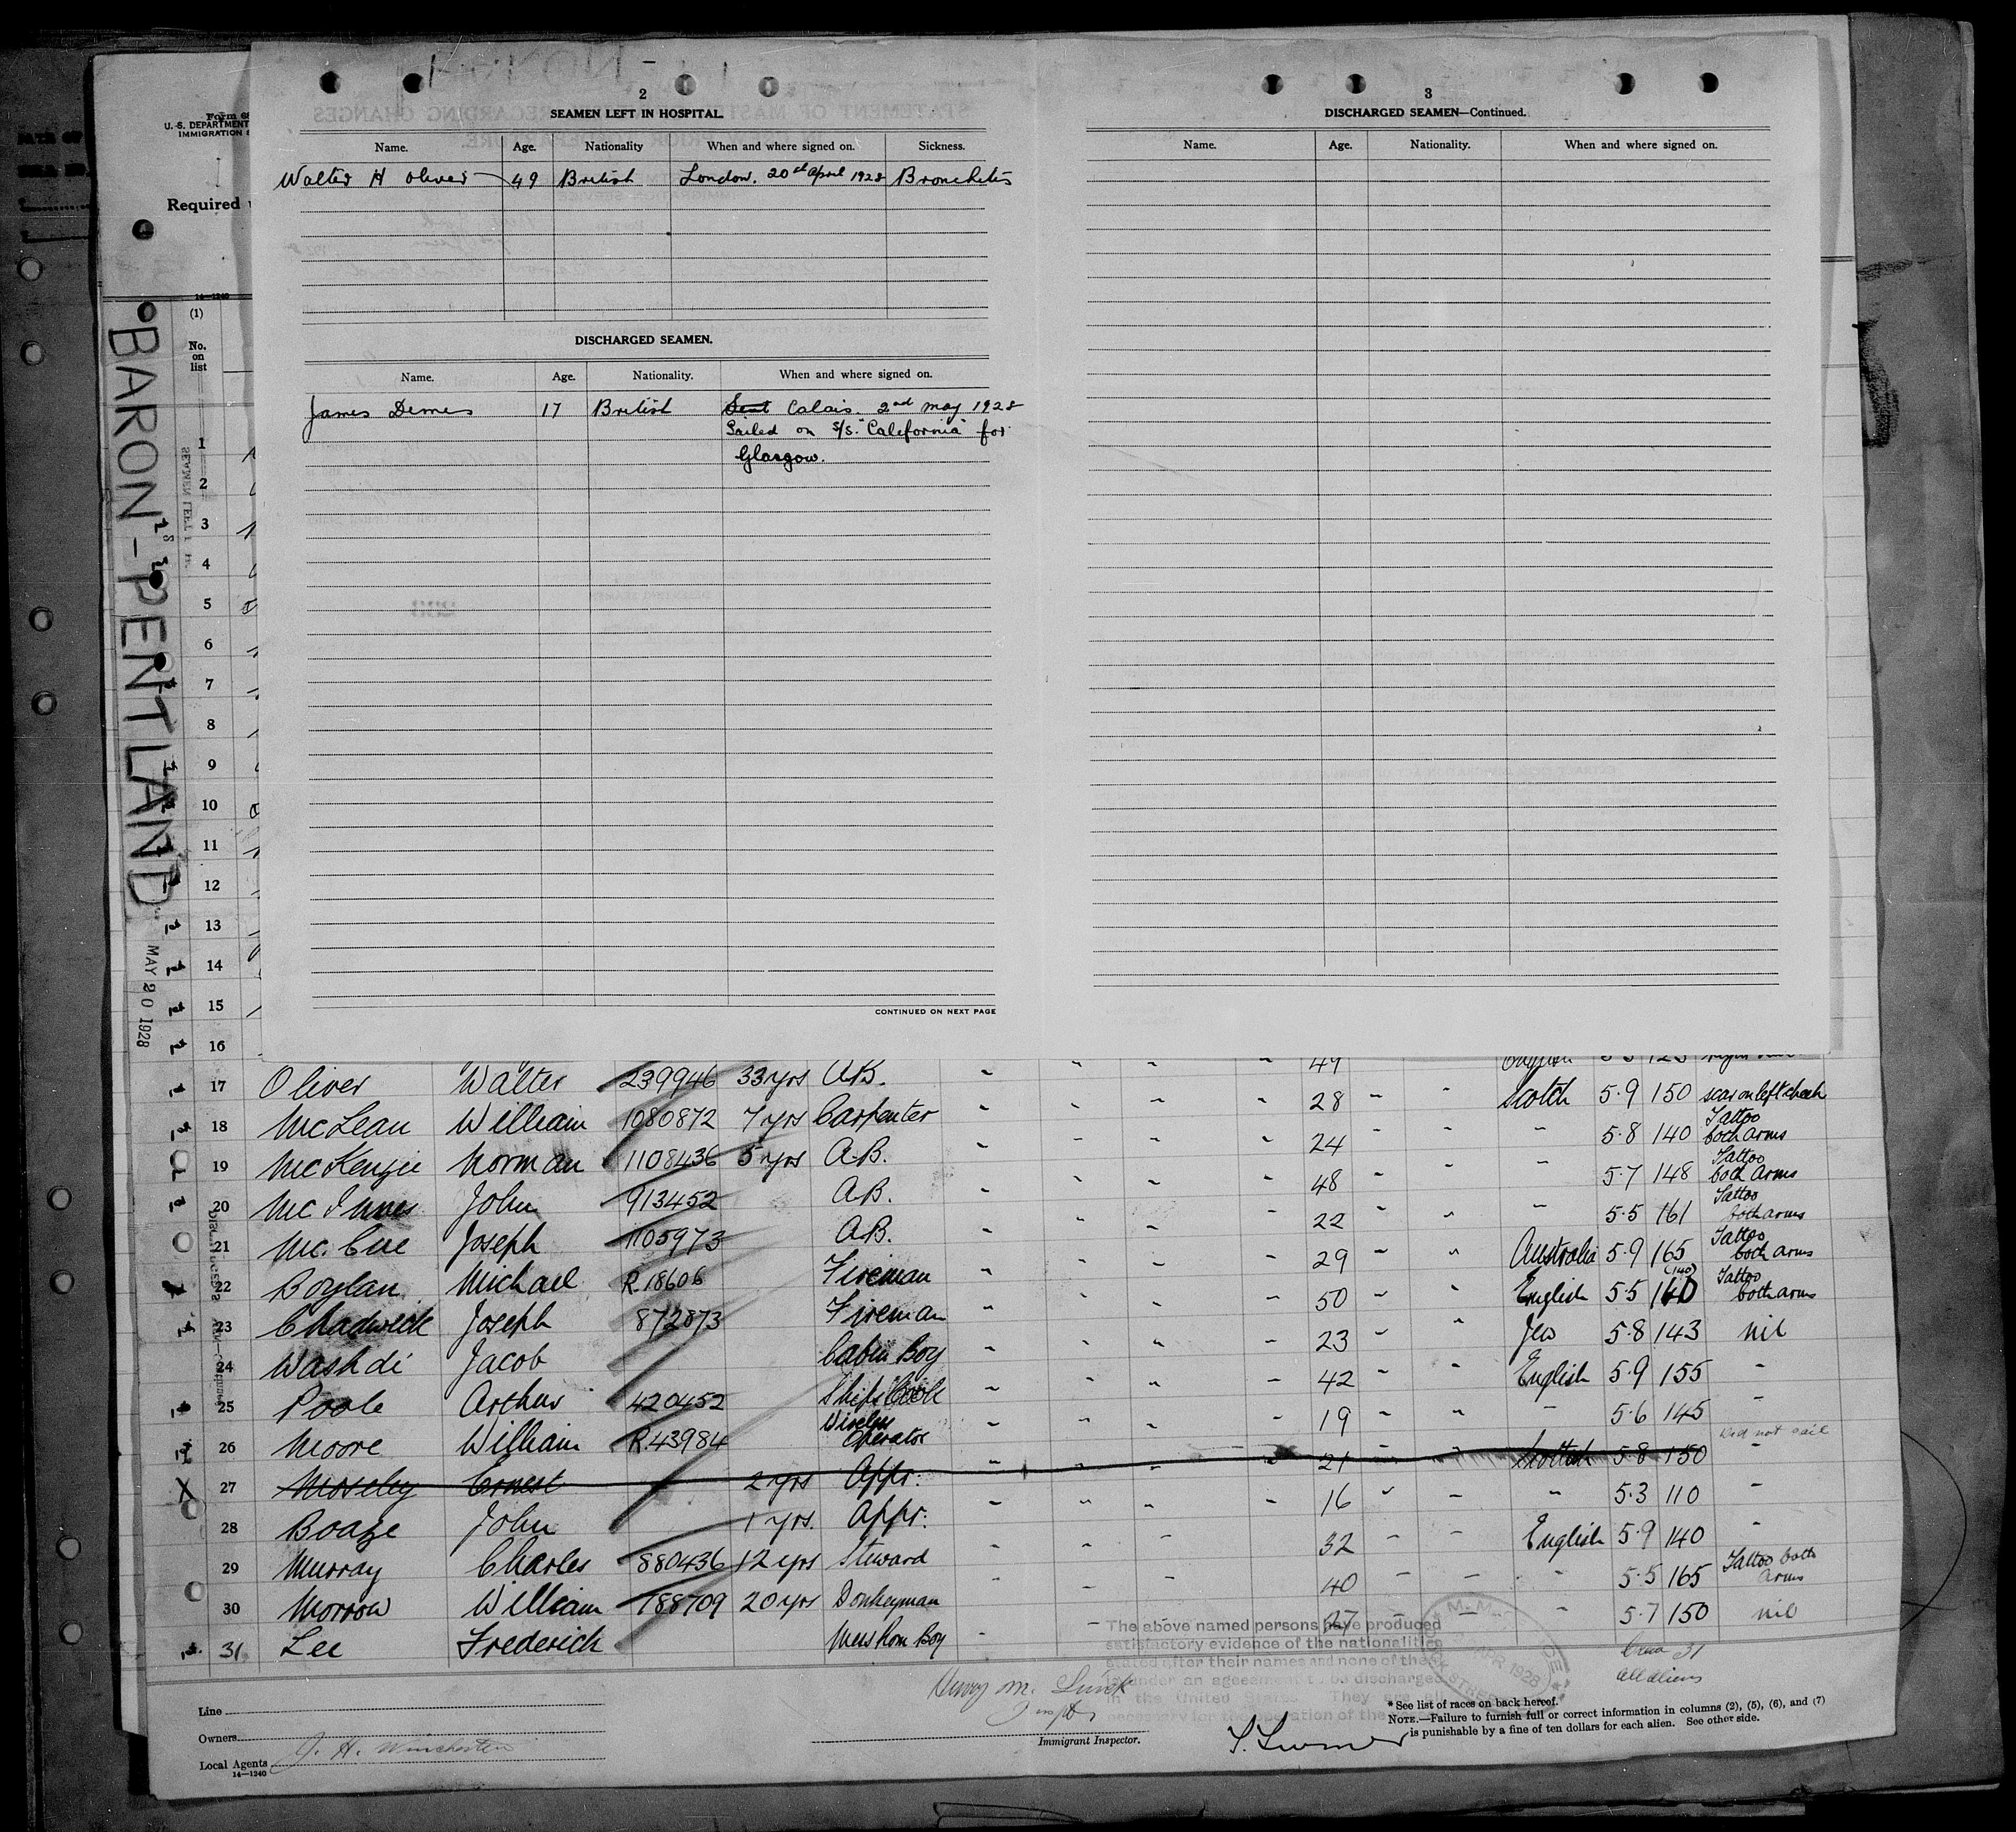 2
SEAMEN LEFT IN HOSPITAL.
Name. Age. Nationality When and where signed on. Sickness.
Walter H Oliver 49 British London. 20th April 1928 Bronchitis
DISCHARGED SEAMEN.
Name. Age. Nationality. When and where signed on.
James Demes 17 British Sent Calais. 2nd May 1928
Sailed on s/s. "California" for
Glasgow.
CONTINUED ON NEXT PAGE
3
DISCHARGED SEAMEN—Continued.
Name. Age. Nationality. When and where signed on.
Form 68
U.S. DEPARTMENT
IMMIGRATION
Required
14—1240
(1)
No.
on
list
"BARON-PENTLAND"
MAY 20 1928
1
2
3
4
5
6
7
8
9
10
11
12
13
14
15
16
17 Oliver Walter 239946 33 yrs A.B. " " " " 49
18 McLean William 1080872 7 yrs Carpenter " " " " 28 " " Scotch 5.9 150 scar on left cheek
19 McKenzie Norman 1108436 5 yrs A.B. " " " " 24 " " " 5.8 140 Tattoo both arms
20 McInnes John 913452 A.B. " " " " 48 " " " 5.7 148 Tattoo both arms
21 Mc.Cue Joseph 1105973 A.B. " " " " 22 " " " 5.5 161 Tattoo both arms
22 Boylan Michael R.18606 Fireman " " " " 29 " " Australia 5.9 165 Tattoo both arms
23 Chadwick Joseph 872873 Fireman " " " " 50 " " English 5.5 140 (140) Tattoo both arms
24 Washdi Jacob Cabin Boy " " " " 23 " " Jew 5.8 143 nil
25 Poole Arthur 420452 Ships Cook " " " " 42 " " English 5.9 155 "
26 Moore William R.43984 Wireless Operator " " " " 19 " " " 5.6 145 "
27 Moseley Ernest 2 yrs Appr. " " " " 21 " " Scotch 5.8 150 " Did not sail
28 Boaze John 1 yrs. Appr. " " " " 16 " " " 5.3 110 "
29 Murray Charles 880436 12 yrs Steward " " " 32 " " English 5.9 140 "
30 Morrow William 788709 20 yrs Donkeyman " " " 40 " " " 5.5 165 Tattoo both arms
31 Lee Frederick Mess Rom Boy " " " 27 " " " 5.7 150 nil
The above named persons have produced
satisfactory evidence of the nationalities
stated after their names and none of the
under an agreement to be discharged
in the United States. They are
necessary for the operation of the
APR 1928
Crew 31
all aliens
Line
Owners
Local Agents J. H. Winchester
14—1240
Henry M.
Immigrant Inspector.
* See list of races on back hereof.
NOTE.—Failure to furnish full or correct information in columns (2), (5), (6), and (7)
is punishable by a fine of ten dollars for each alien. See other side.